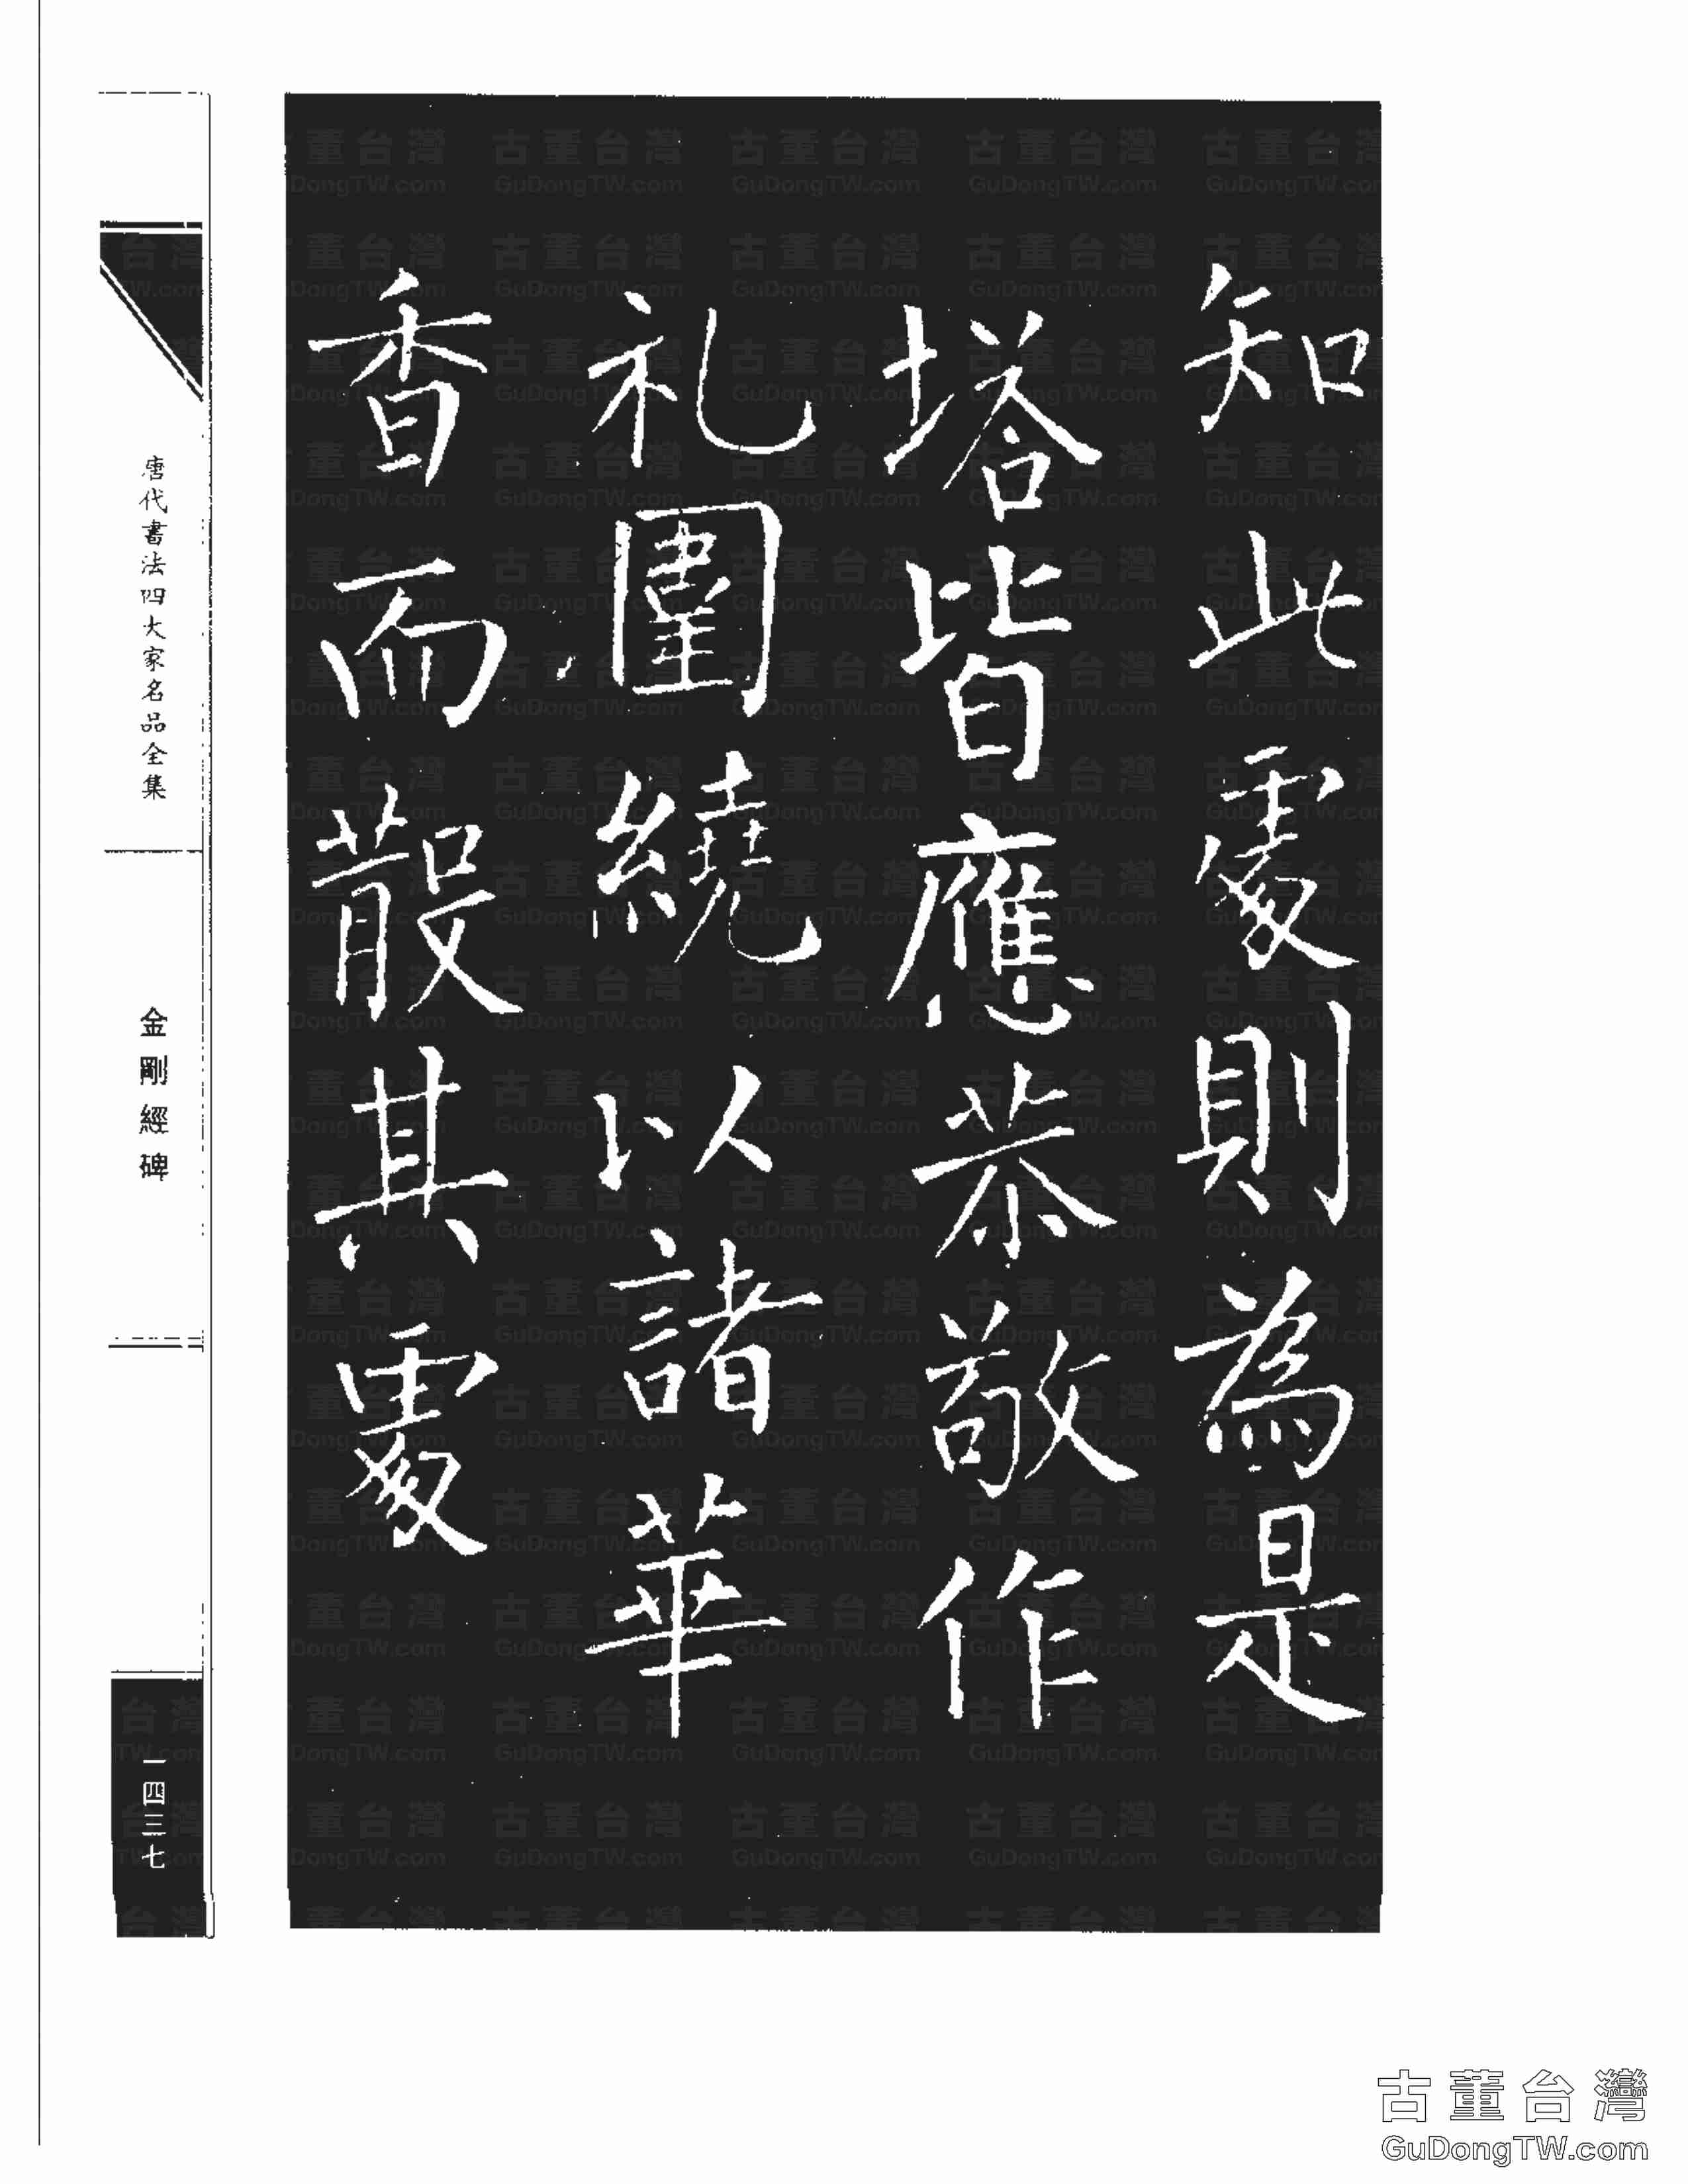 知此處則為是
塔皆應恭敬作
礼圍繞以諸華
香而散其處
唐代書法四大家名品全集
金剛經碑
一四三七
古董台灣
GuDongTW.com